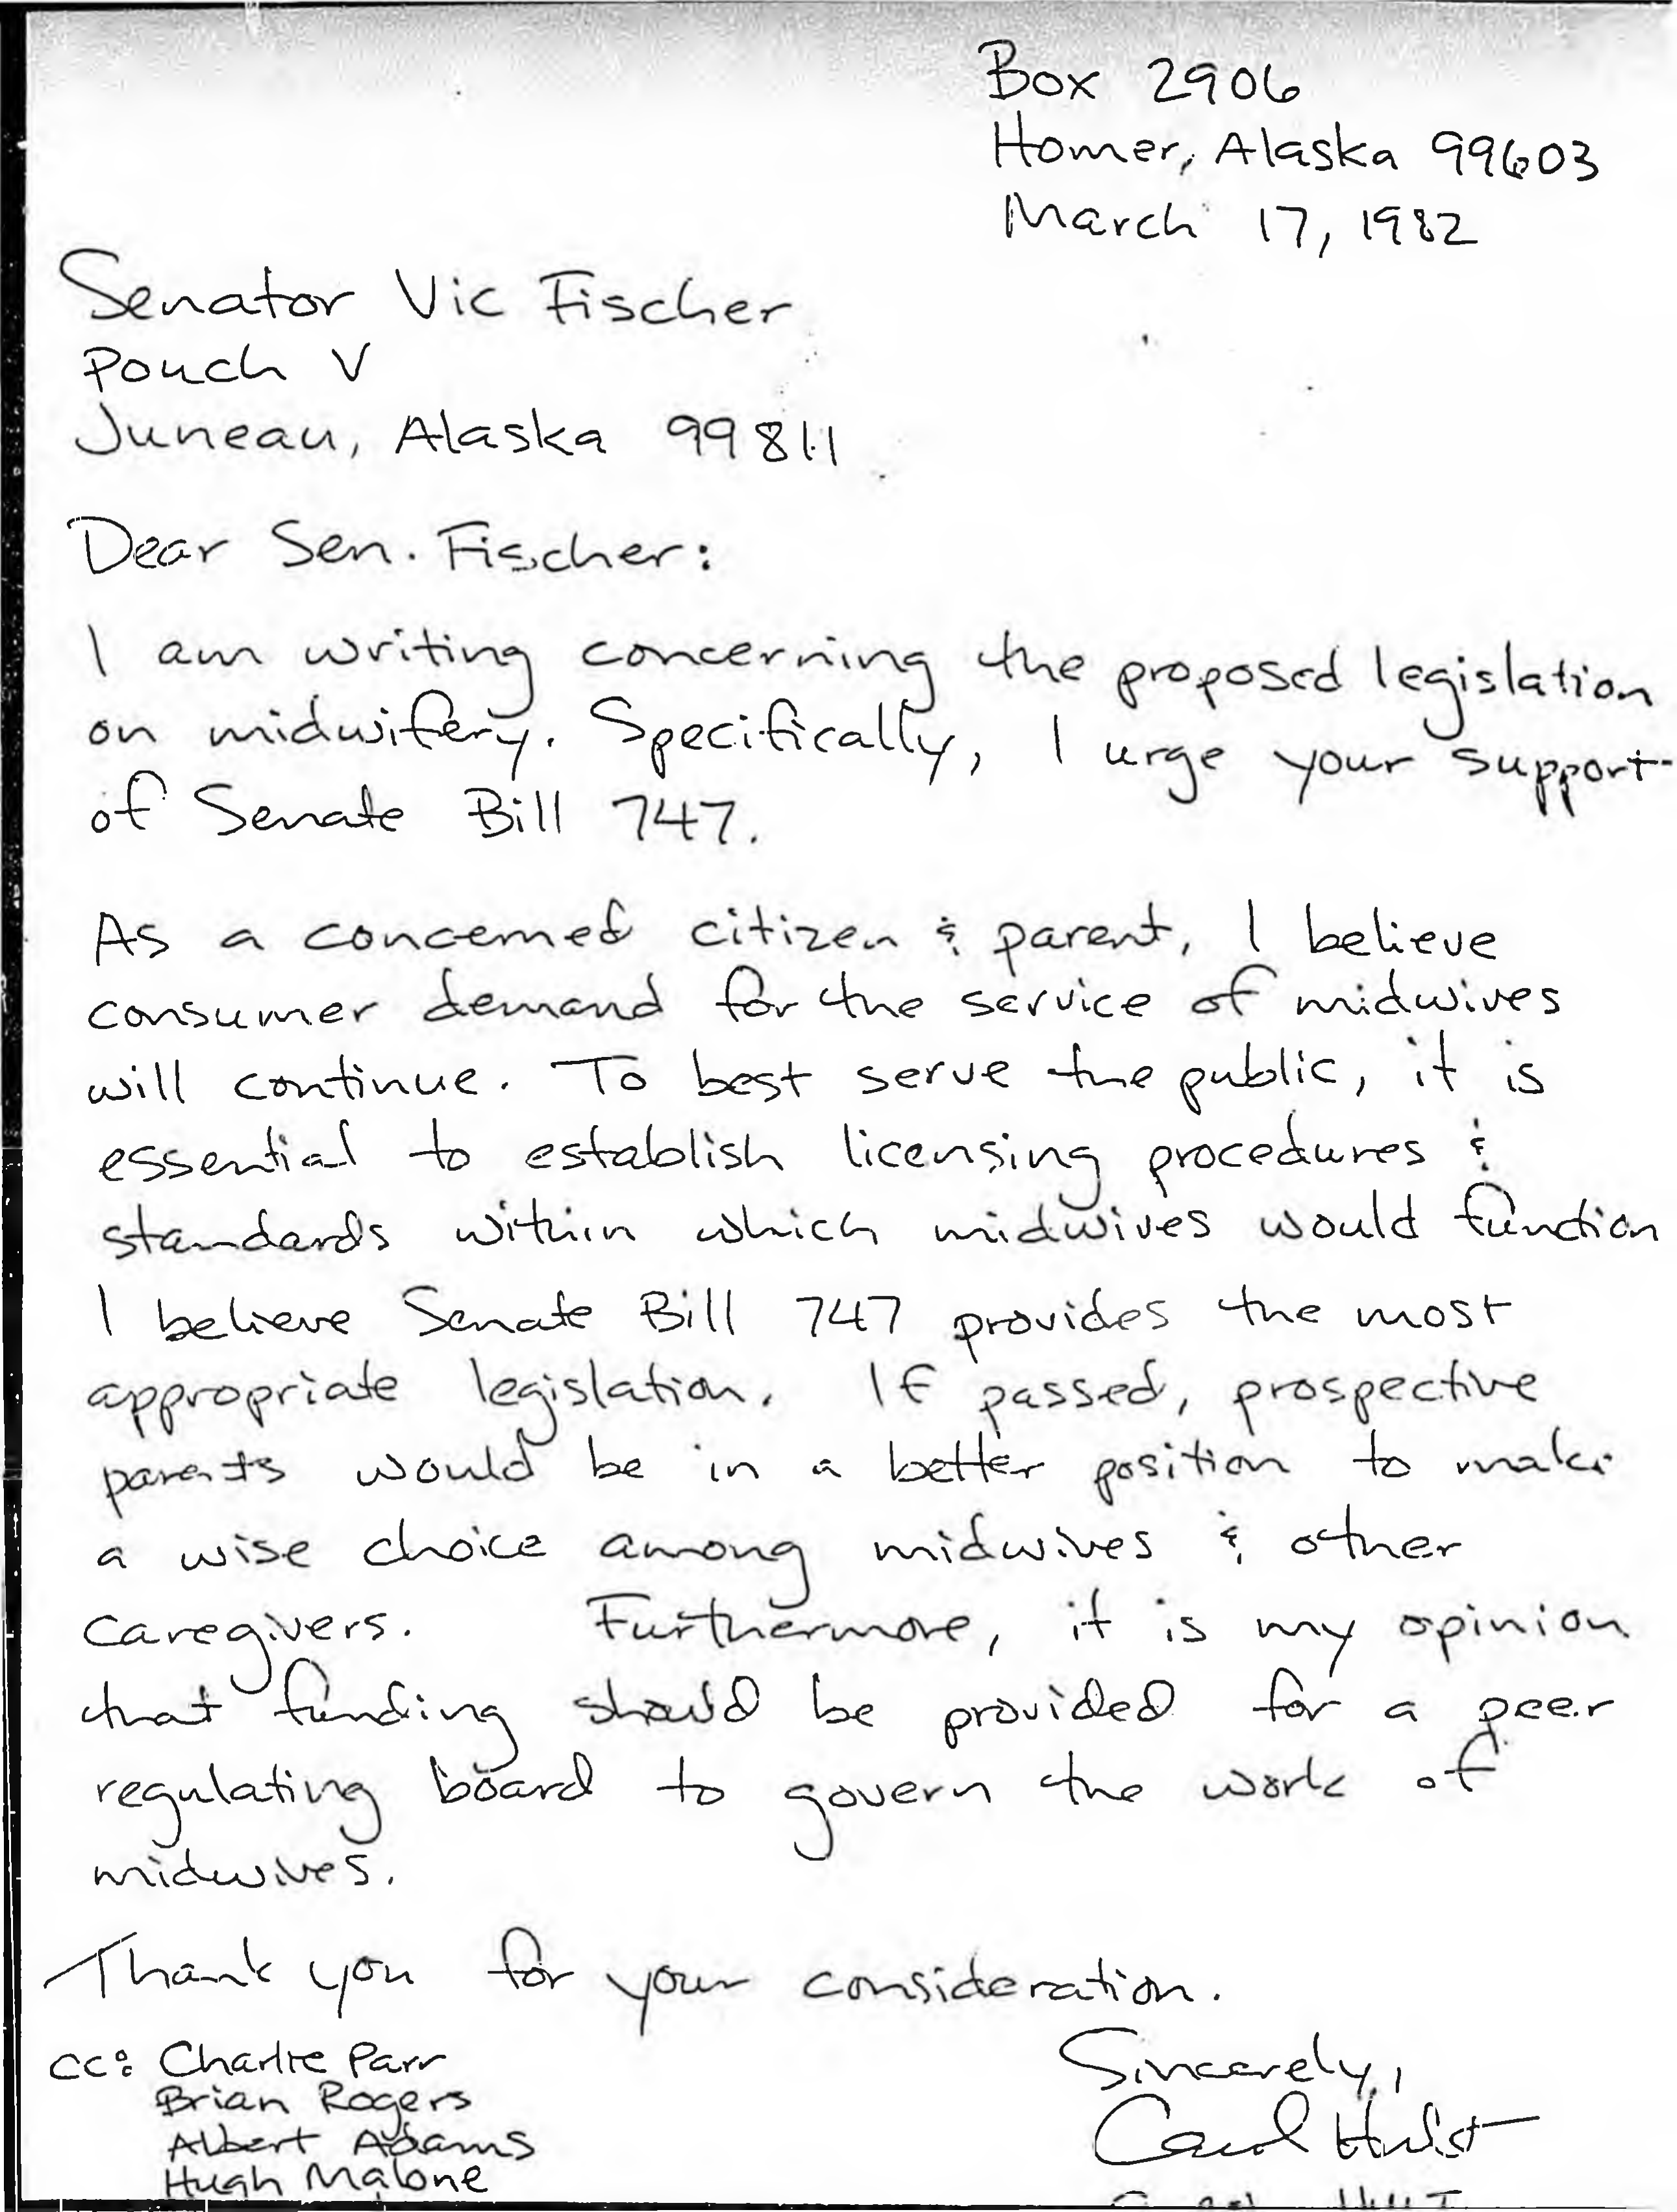 Box 2906
Homer, Alaska 99603
March 17, 1982
Senator Vic Fischer
Pouch V
Juneau, Alaska 99811
Dear Sen. Fischer:
I am writing concerning the proposed legislation
on midwifery. Specifically, I urge your support
of Senate Bill 747.
As a concerned citizen & parent, I believe
consumer demand for the service of midwives
will continue. To best serve the public, it is
essential to establish licensing procedures &
standards within which midwives would function
I believe Senate Bill 747 provides the most
appropriate legislation. If passed, prospective
parents would be in a better position to make
a wise choice among midwives & other
caregivers. Furthermore, it is my opinion
that funding should be provided for a peer
regulating board to govern the work of
midwives.
Thank you for your consideration.
cc: Charlie Parr
Brian Rogers
Albert Adams
Hugh Malone
Sincerely,
Carol Hulst